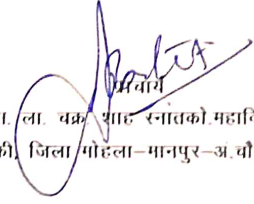 प्राचार्य
ला. चक्र. शाह स्नातको.महावि
की, जिला मोहला-मानपुर-अं.चौ